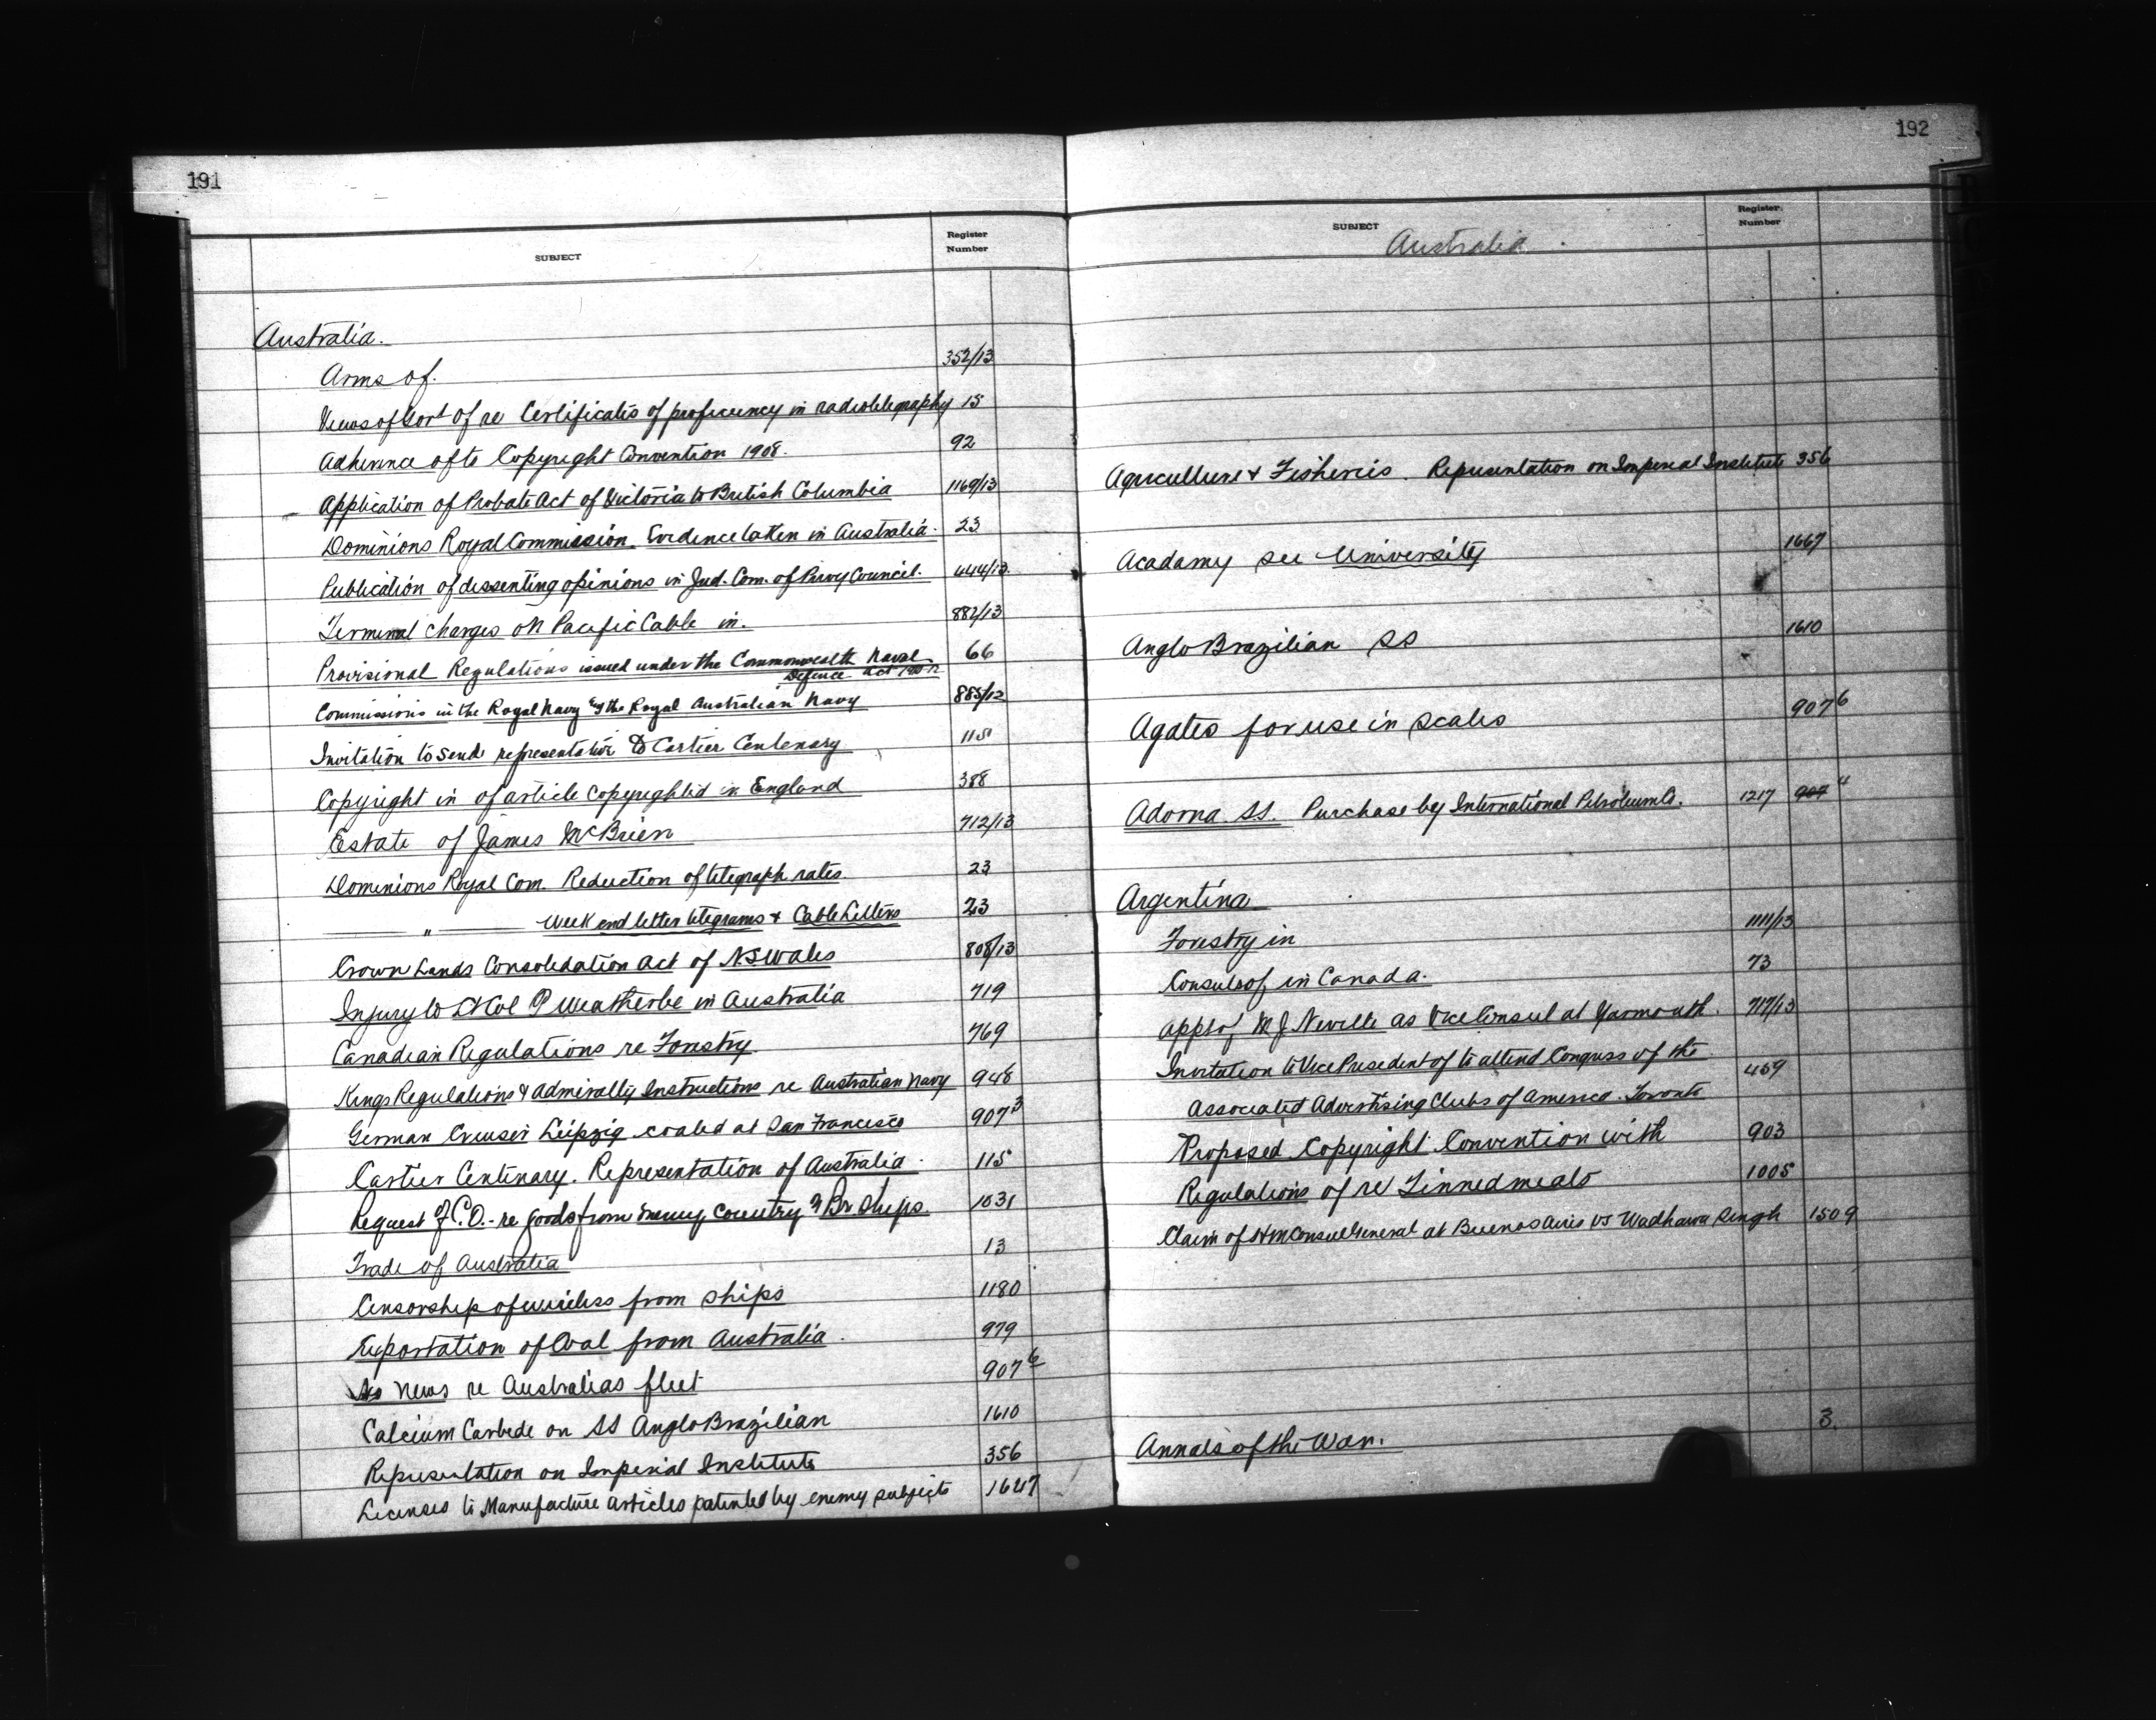 191
SUBJECT Register Number
Australia.
Arms of. 352/13
Views of Govt of re Certificates of proficiency in radiotelegraphy 15
Adherence of to Copyright Convention 1908. 92
Application of Probate Act of Victoria to British Columbia 1169/13
Dominions Royal Commission. Evidence taken in Australia. 23
Publication of dissenting opinions in Jud. Com. of Privy Council. 444/13
Terminal charges on Pacific Cable in. 882/13
Provisional Regulations issued under the Commonwealth Naval 66
Defence Act 1910-12
Commissions in the Royal Navy & the Royal Australian Navy 885/12
Invitation to send representative to Cartier Centenary 115
Copyright in of article copyrighted in England 388
Estate of James McBrien 712/13
Dominions Royal Com. Reduction of telegraph rates. 23
" Week end letter telegrams & Cable Letters 23
Crown Lands Consolidation Act of N.S. Wales 808/13
Injury to Lt Col P Weatherbe in Australia 719
Canadian Regulations re Forestry. 769
Kings Regulations & Admiralty Instructions re Australian Navy 948
German Cruiser Leipzig coaled at San Francisco 907 3
Cartier Centenary. Representation of Australia. 115
Request of C.O. - re goods from enemy country in Br. Ships. 1031
Trade of Australia 13
Censorship of wireless from ships 1180
Exportation of Coal from Australia. 979
No news re Australias fleet 907 6
Calcium Carbede on SS Anglo Brazilian 1610
Representation on Imperial Institute 356
Licenses to Manufacture articles patented by enemy subjects 1647
192
SUBJECT Register Number
Australia.
Agriculture & Fisheries. Representation on Imperial Institute 356
Acadamy see University 1667
Anglo Brazilian SS 1610
Agates for use in scales 907 6
Adorna SS. Purchase by International Petroleum Co. 1217 907 4
Argentina
Forestry in 1111/13
Consuls of in Canada. 73
Appt of M J Neville as Vice Consul at Yarmouth. 717/13
Invitation to Vice President of to attend Congress of the 459
Associated Advertising Clubs of America. Toronto
Proposed Copyright Convention with 903
Regulations of re Tinned meats 1005
Claim of HM Consul General at Buenos Aires vs Wadhawa Singh 1509
Annals of the War. 3.